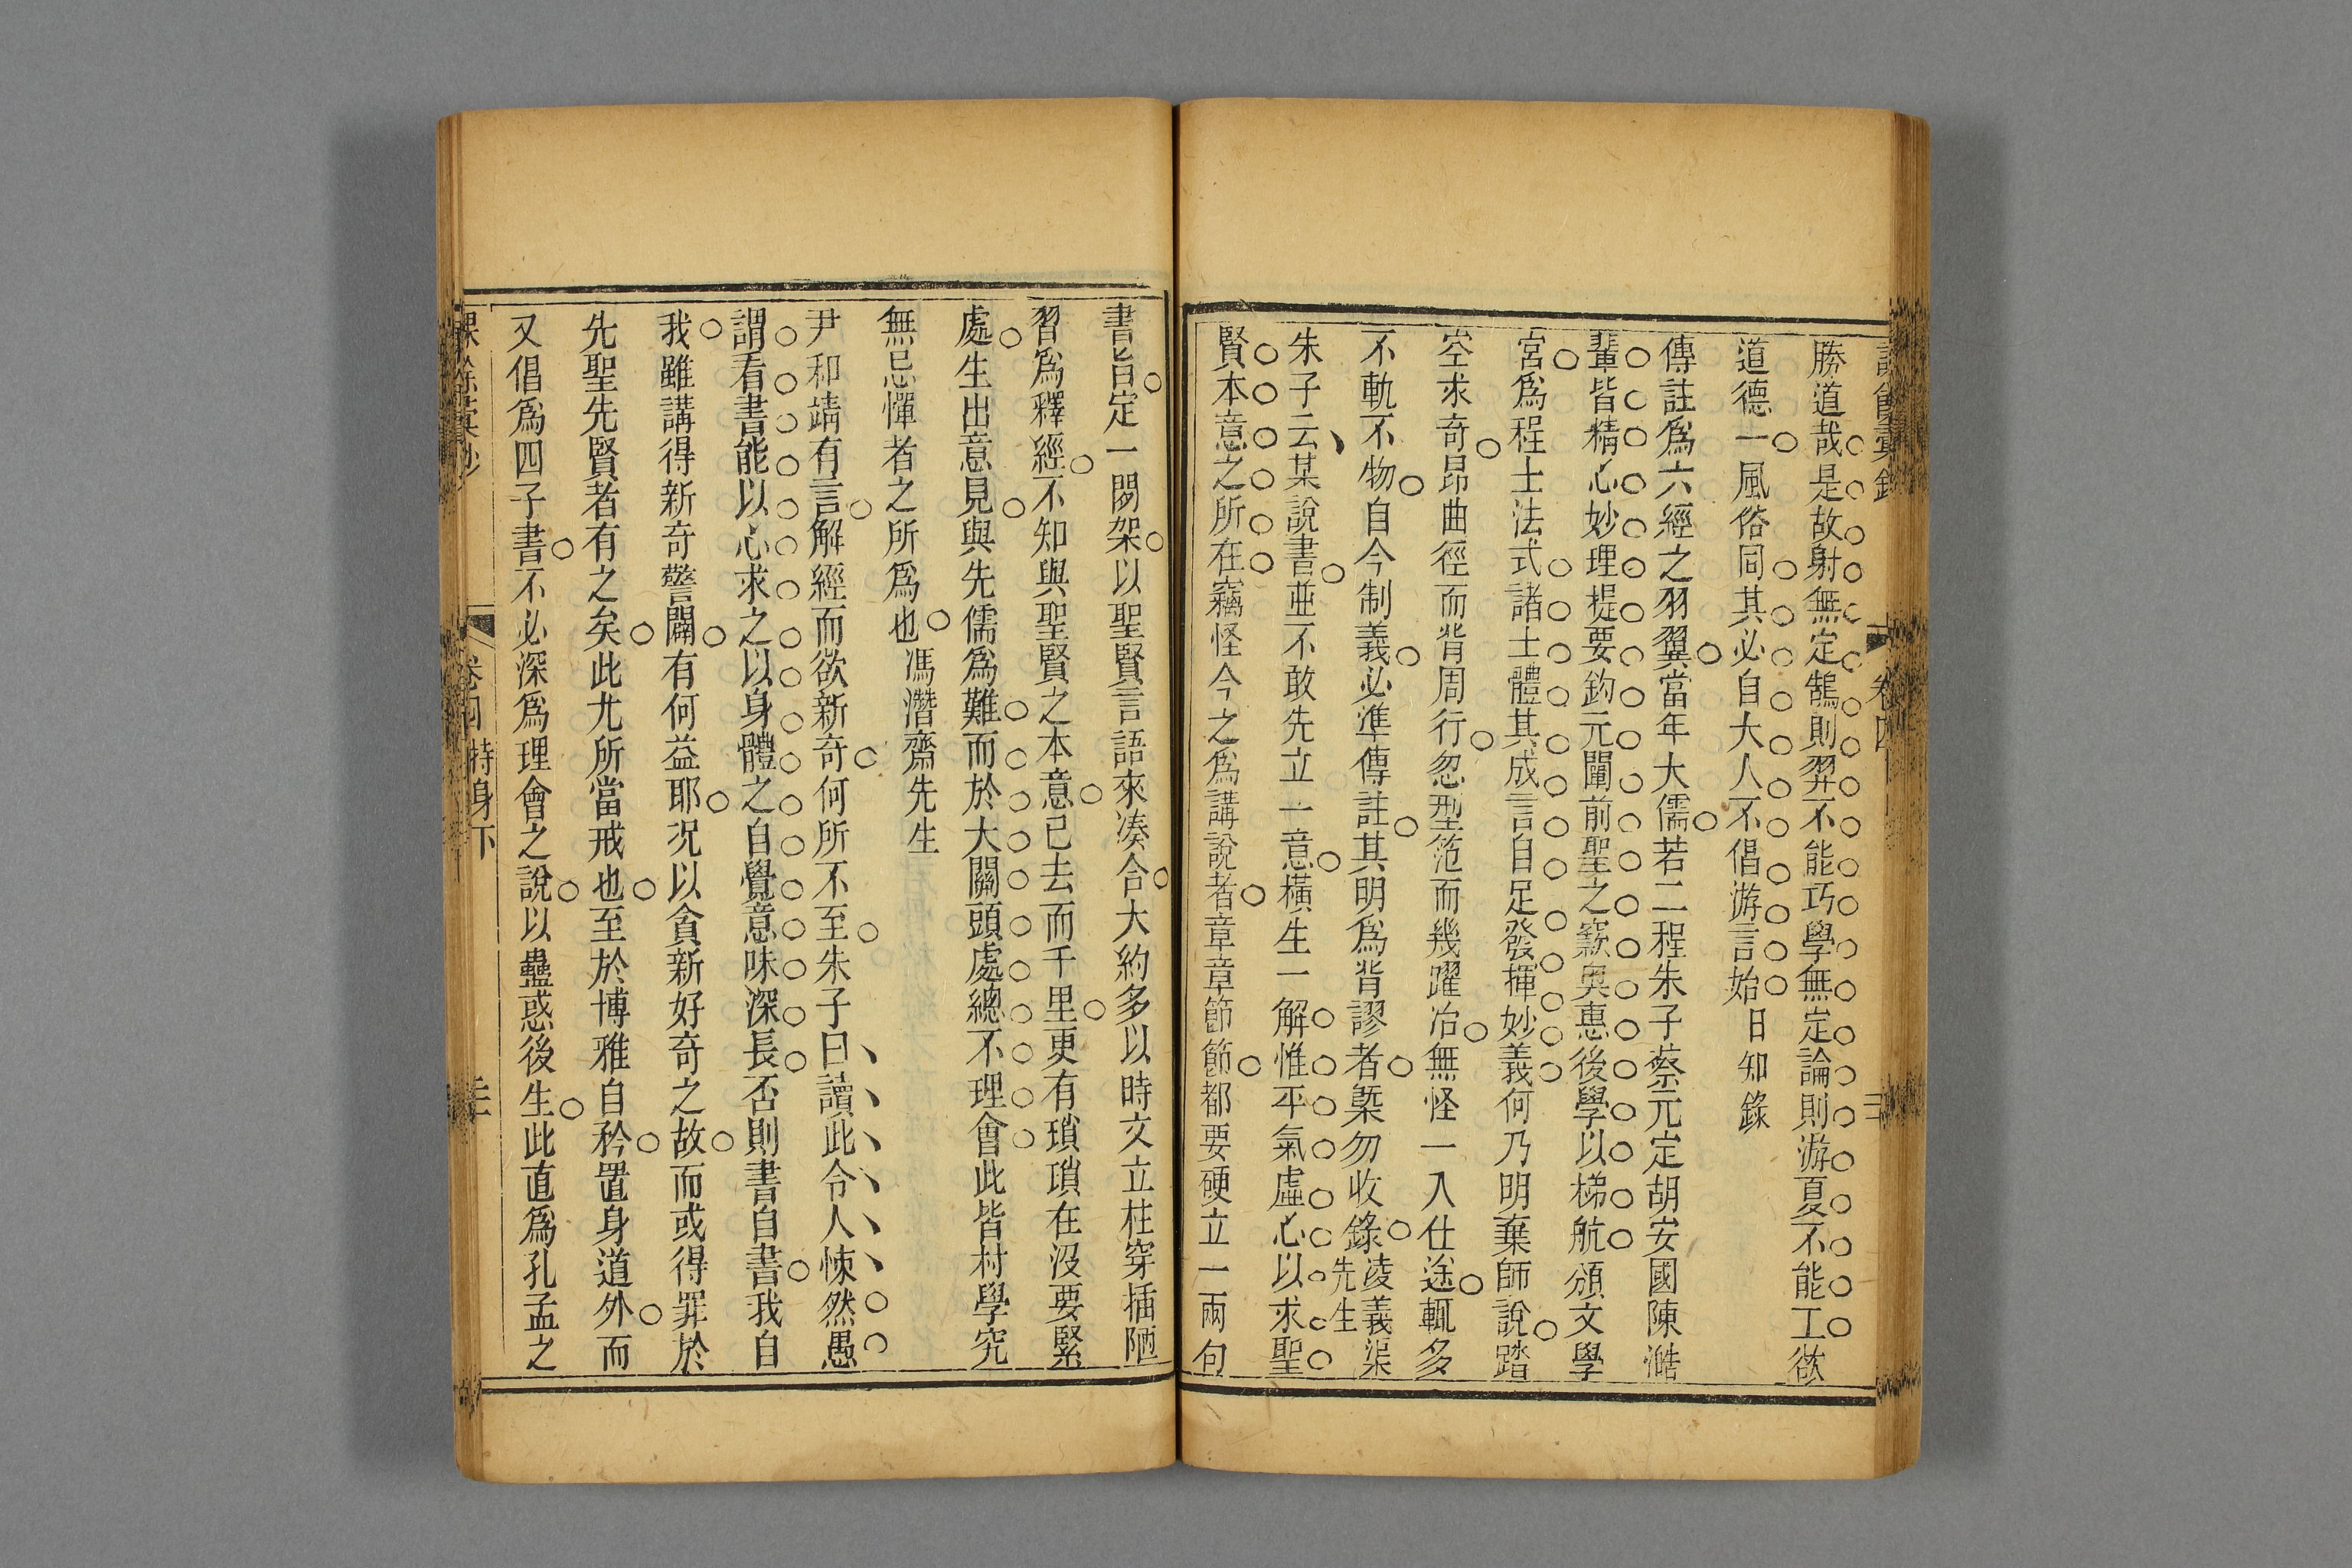 課餘彙鈔
卷四
勝道哉是故射無定鵠則羿不能巧學無定論則游夏不能工欲
道德一風俗同其必自大人不倡游言始日知錄
傳註爲六經之羽翼當年大儒若二程朱子蔡元定胡安國陳澔
輩皆精心妙理提要鈎元闡前聖之窾奧惠後學以梯航頒文學
宮爲程士法式諸士體其成言自足發揮妙義何乃明棄師說踏
空求奇昂曲徑而背周行忽型范而幾躍冶無怪一入仕途輒多
不軌不物自今制義必準傳註其明爲背謬者槩勿收錄凌義渠先生
朱子云某說書並不敢先立一意橫生一解惟平氣虛心以求聖
賢本意之所在竊怪今之爲講說者章章節節都要硬立一兩句
書旨定一間架以聖賢言語來湊合大約多以時文立柱穿插陋
習爲釋經不知與聖賢之本意已去而千里更有瑣瑣在沒要緊
處生出意見與先儒爲難而於大關頭處總不理會此皆村學究
無忌憚者之所爲也馮潛齋先生
尹和靖有言解經而欲新奇何所不至朱子曰讀此令人悚然愚
謂看書能以心求之以身體之自覺意味深長否則書自書我自
我雖講得新奇警闢有何益耶況以貪新好奇之故而或得罪於
先聖先賢者有之矣此尤所當戒也至於博雅自矜置身道外而
又倡爲四子書不必深爲理會之說以蠱惑後生此直爲孔孟之
課餘彙鈔
卷四 持身下